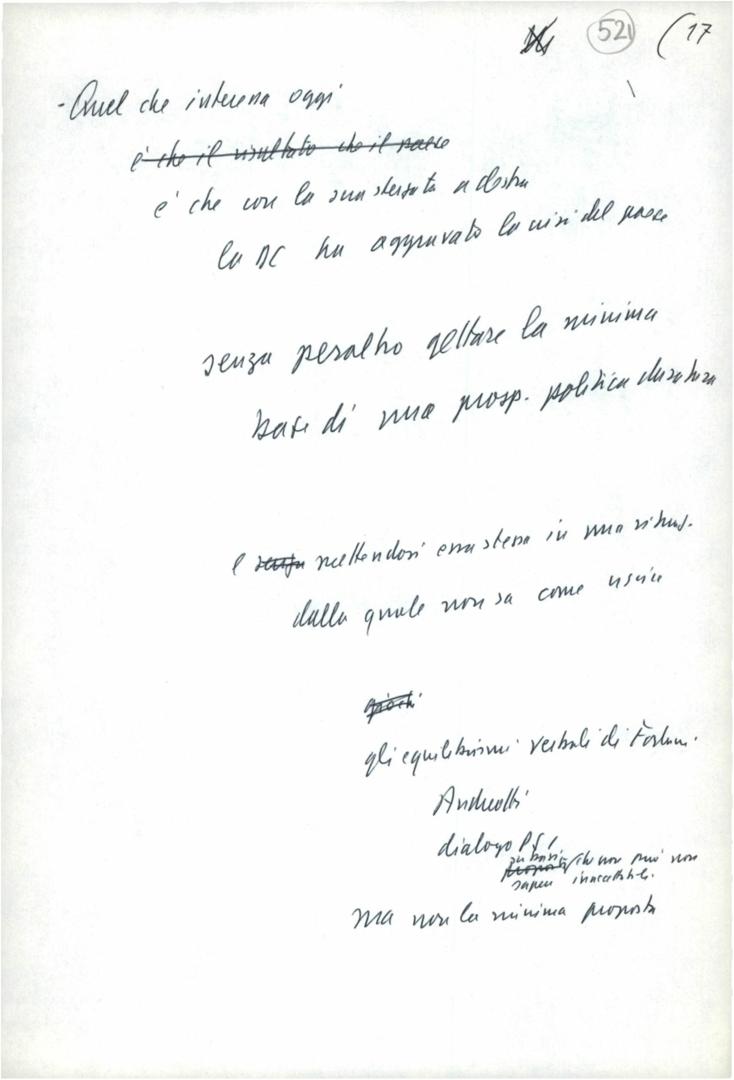 521 (17
- Quel che interessa oggi
è che il risultato che il paese
è che con la sua sterzata a destra
la DC ha aggravato la crisi del paese
senza peraltro gettare la minima
base di una prosp. politica duratura
e senza mettendosi essa stessa in una situaz.
dalla quale non sa come uscire
giochi
gli equilibrismi verbali di Forlani.
Andreotti
dialogo PSI
su basi che non può non
sapere inaccettabili.
ma non la minima proposta